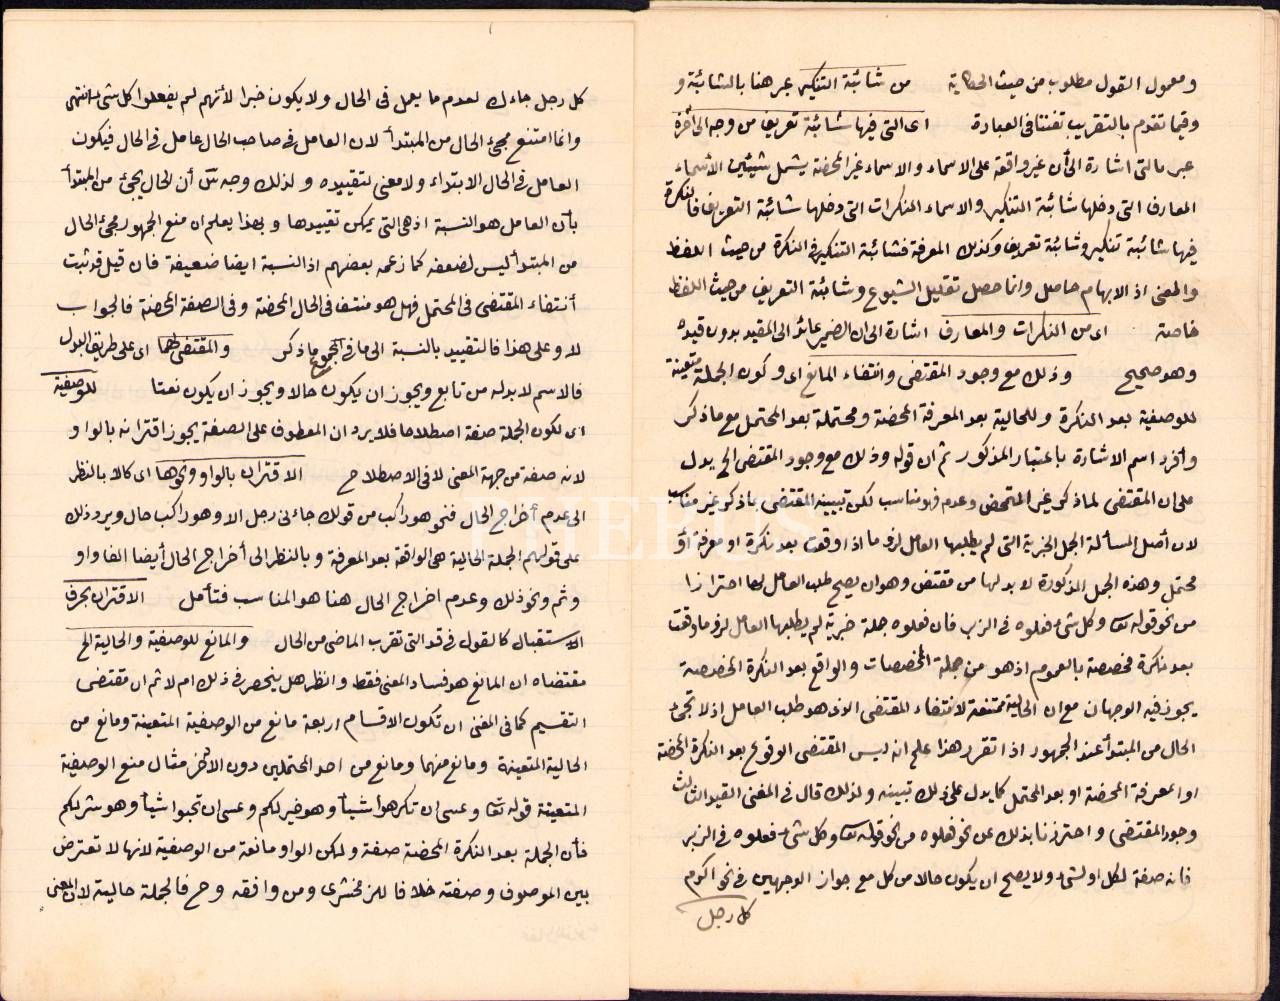 ومعمول القول مطلوب من حيث الحكاية من شائبة التنكير عبر هنا بالشائبة و
وفيما تقدم بالتقريب تفننا في العبارة اى التى فيها شائبة تعريف من وجه الى آخره
عبر بالتى اشارة الى أن غير واقعة على الاسماء والاسماء غير المحضة يشمل شيئين الأسماء
المعارف التى دخلها شائبة التنكير والاسماء المنكرات التى دخلها شائبة التعريف فالنكرة
فيها شائبة تنكير وشائبة تعريف وكذلك المعرفة فشائبة التنكير فى النكرة من حيث اللفظ
والمعنى اذ الابهام حاصل وانما حصل تقليل الشيوع وشائبة التعريف من حيث اللفظ
خاصة اى من النكرات والمعارف اشارة الى ان الضمير عائد الى المقيد بدون قيده
وهو صحيح وذلك مع وجود المقتضى وانتفاء المانع اى وكون الجملة متعينة
للوصفية بعد النكرة وللحالية بعد المعرفة المحضة ومحتملة بعد المحتمل مع ما ذكر
وأفرد اسم الاشارة باعتبار المذكور ثم ان قوله وذلك مع وجود المقتضى الخ يدل
على ان المقتضى لما ذكر غير التمحض وعدمه مناسب لكن تبيينه المقتضى بما ذكر غير مناسب
لان أصل المسألة الجمل الخبرية التى لم يطلبها العامل لزوما اذا وقعت بعد نكرة او معرفة أو
محتمل وهذه الجمل المذكورة لا بد لها من مقتض وهو ان يصح طلب العامل لها احترازا
من نحو قوله تعا وكل شىء فعلوه فى الزبر فان فعلوه جملة خبرية لم يطلبها العامل لزوما وقعت
بعد نكرة مخصصة بالعموم اذ هو من جملة المخصصات والواقع بعد النكرة المخصصة
يجوز فيه الوجهان مع ان الحالية ممتنعة لانتفاء المقتضى الذى هو طلب العامل اذ لا تجئ
الحال من المبتدأ عند الجمهور اذا تقرر هذا علم انه ليس المقتضى الوقوع بعد النكرة المحضة
او المعرفة المحضة او بعد المحتمل كما يدل على ذلك تبيينه ولذلك قال فى المغنى القيد الثالث
وجود المقتضى واحترزنا بذلك عن نحو فعلوه من نحو قوله تعا وكل شىء فعلوه فى الزبر
فانه صفة لكل او لشىء ولا يصح ان يكون حالا من كل مع جواز الوجهين فى نحو اكرم
كل رجل
كل رجل جاءك لعدم ما يعمل فى الحال ولا يكون خبرا لأنهم لم يفعلوا كل شىء انتهى
وانما امتنع مجئ الحال من المبتدأ لان العامل فى صاحب الحال عامل فى الحال فيكون
العامل فى الحال الابتداء ولا معنى لتقييده ولذلك وجه سى أن الحال يجئ من المبتدأ
بأن العامل هو النسبة اذ هى التى يمكن تقييدها وبهذا يعلم ان منع الجمهور مجئ الحال
من المبتدأ ليس لضعفه كما زعمه بعضهم اذ النسبة ايضا ضعيفة فان قيل قد ثبت
أنتفاء المقتضى فى المحتمل فهل هو منتف فى الحال المحضة وفى الصفة المحضة فالجواب
لا وعلى هذا فالتقييد بالنسبة الى ما فى المجموع ماذكر والمقتضى لهما اى على طريق البدل
فالاسم لا بد له من تابع ويجوز ان يكون حالا ويجوز ان يكون نعتا للوصفية
اى لكون الجملة صفة اصطلاحا فلا يرد ان المعطوف على الصفة يجوز اقترانه بالواو
لانه صفة من جهة المعنى لا فى الاصطلاح الاقتران بالواو ونحوها اى كالا بالنظر
الى عدم أخراج الحال فنحو هو راكب من قولك جاءنى رجل الا وهو راكب حال ويرد ذلك
على قولهم الجملة الحالية هى الواقعة بعد المعرفة وبالنظر الى أخراج الحال أيضا الفا واو
وثم ونحو ذلك وعدم اخراج الحال هنا هو المناسب فتأمل الاقتران بحرف
الاستقبال كالقول فى قد التى تقرب الماضى من الحال والمانع للوصفية والحالية الخ
مقتضاه ان المانع هو فساد المعنى فقط وانظر هل ينحصر فى ذلك ام لا ثم ان مقتضى
التقسيم كما فى المغنى ان تكون الاقسام اربعة مانع من الوصفية المتعينة ومانع من
الحالية المتعينة ومانع منهما ومانع من احد المحتملين دون الآخر مثال منع الوصفية
المتعينة قوله تعا وعسى ان تكرهوا شيأ وهو خير لكم وعسى ان تحبوا شيأ وهو شر لكم
فأن الجملة بعد النكرة المحضة صفة ولكن الواو مانعة من الوصفية لانها لا تعترض
بين الموصوف وصفته خلافا للزمخشرى ومن وافقه وح فالجملة حالية لان المعنى
PHEBUS